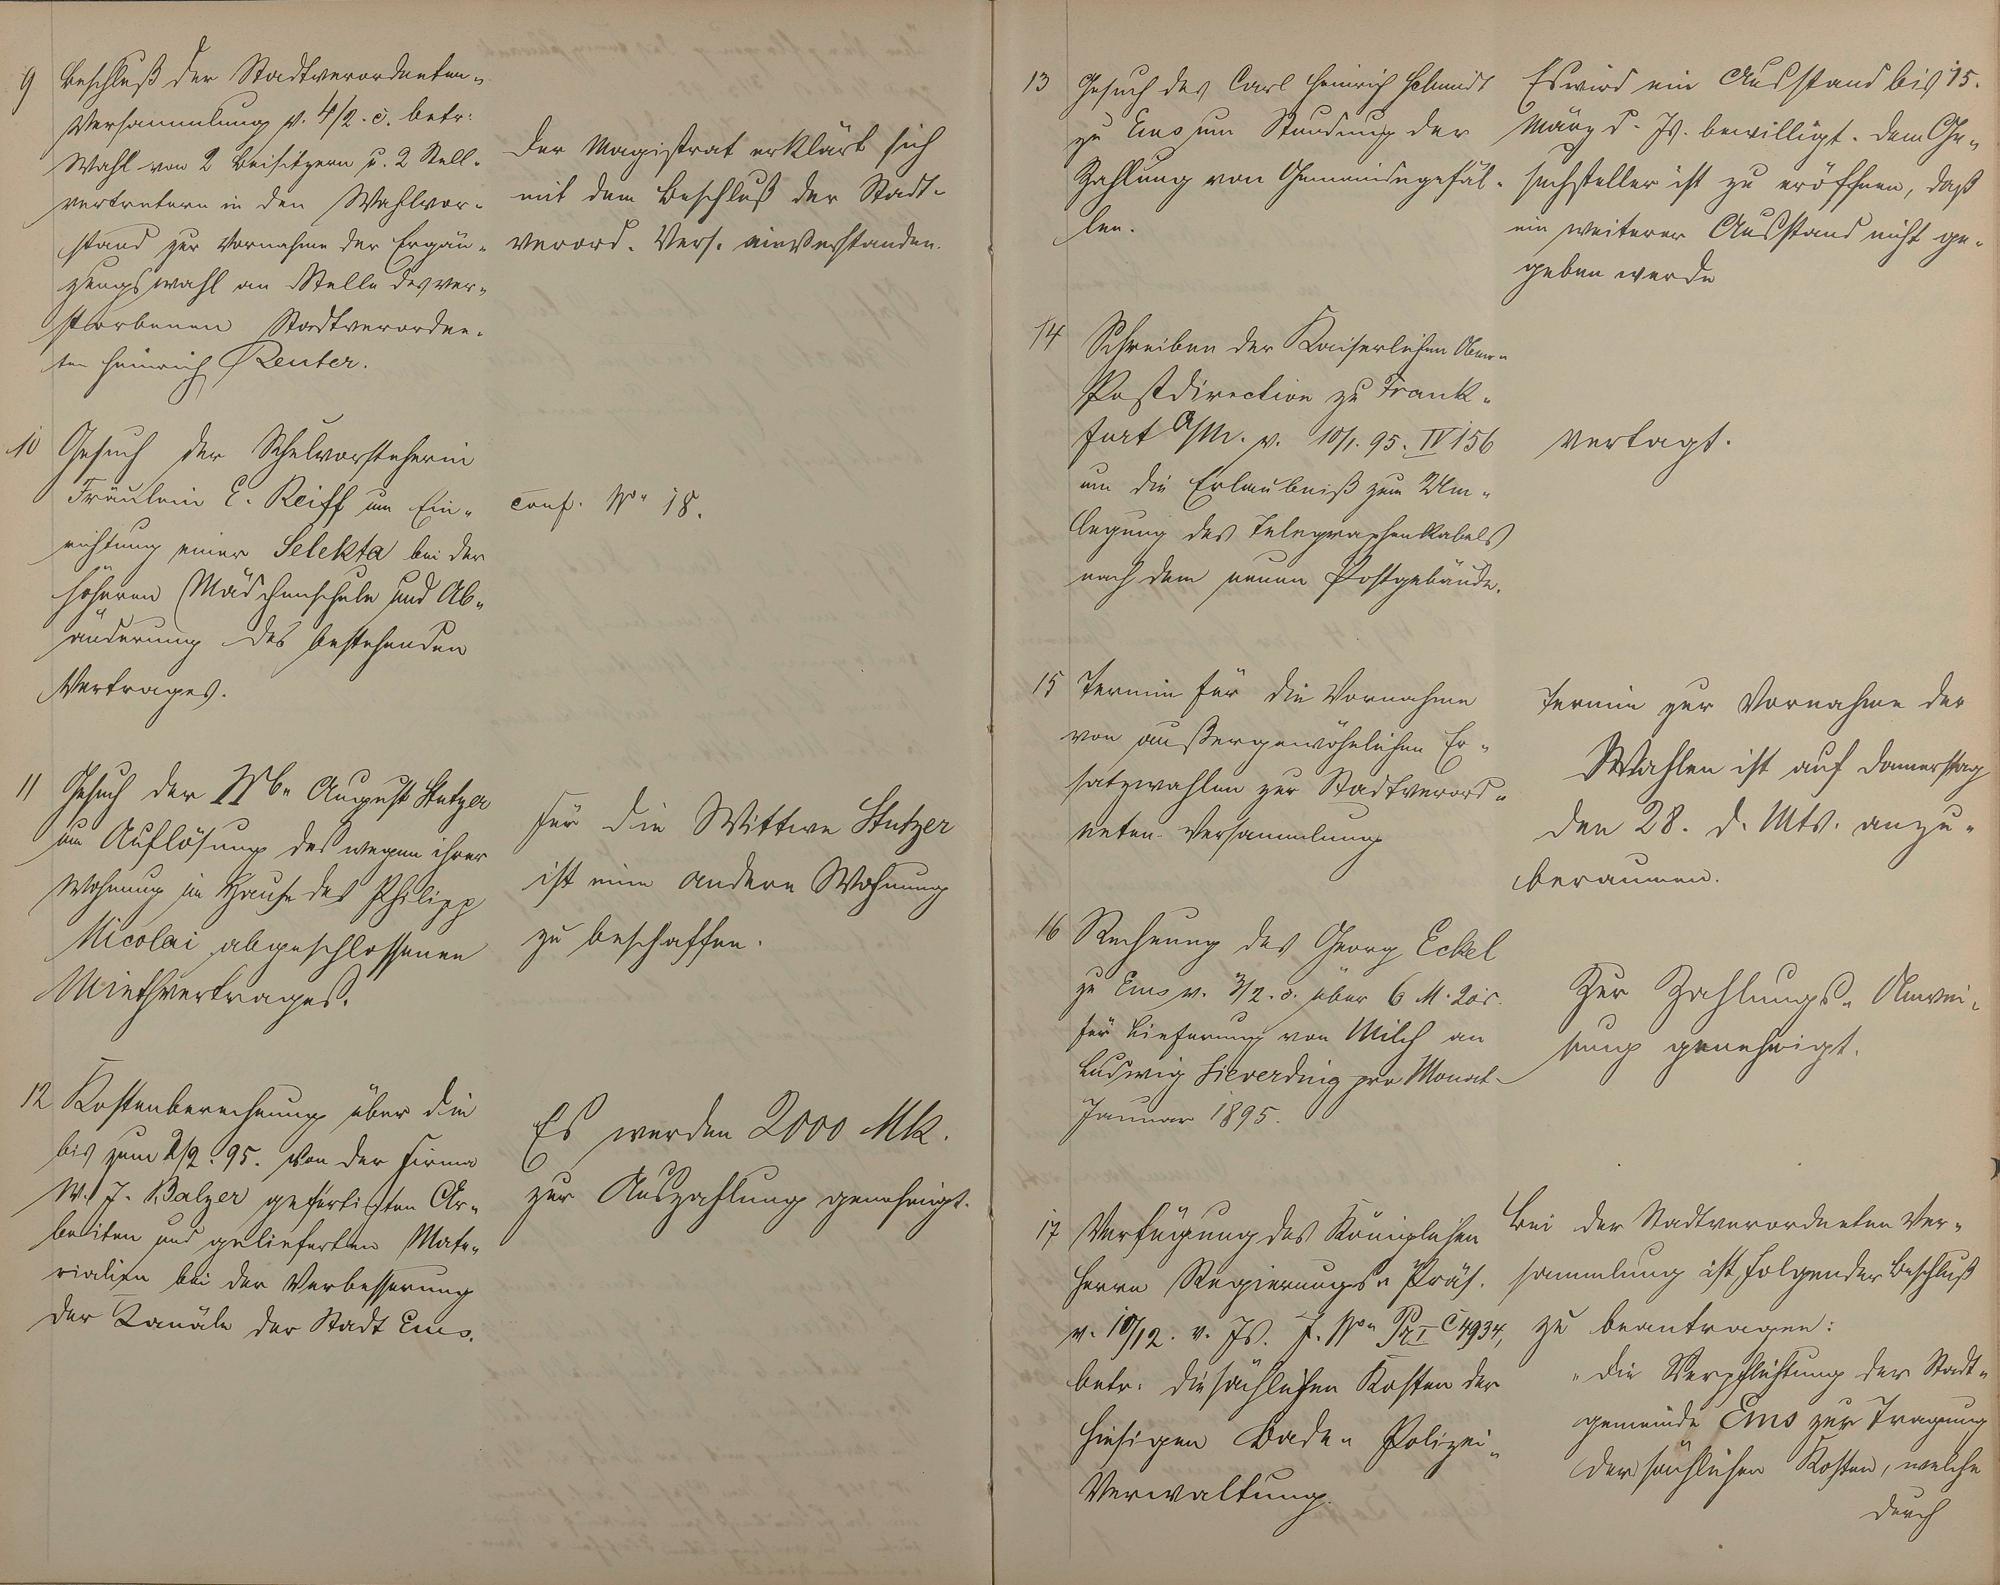 9 Beschluß der Stadtverordneten-
Versammlung v. 4/2. c. betr:
Wahl von 2 Beisitzern u. 2 Stell-
vertretern in den Wahlvor-
stand zur Vornahme der Ergän-
zungswahl an Stelle des ver-
storbenen Stadtverordne-
ten Heinrich Reuter.
Der Magistrat erklärt sich
mit dem Beschluß der Stadt-
verord. Vers. einverstanden.
10 Gesuch der Schulvorsteherin
Fräulein E. Reiff um Ein-
richtung einer Selekta bei der
höheren Mädchenschule und Ab-
änderung des bestehenden
Vertrages.
conf. No 18.
11 Gesuch der Wb. August Stutzer
um Auflösung des wegen ihrer
Wohnung im Hause des Philipp
Nicolai abgeschlossenen
Miethvertrages.
Für die Wittwe Stutzer
ist eine andere Wohnung
zu beschaffen.
12 Kostenberechnung über die
bis zum 2/2. 95. von der Firma
W. J. Balzer gefertigten Ar-
beiten und gelieferten Mate-
rialien bei der Verbesserung
der Kanäle der Stadt Ems.
Es werden 2000 Mk.
zur Auszahlung genehmigt.
13 Gesuch des Carl Heinrich Schmidt
zu Ems um Stundung der
Zahlung von Gemeindegefäl-
len.
Es wird ein Ausstand bis 15.
März d. Js. bewilligt. Dem Ge-
suchsteller ist zu eröffnen, daß
ein weiterer Ausstand nicht ge-
geben werde
14 Schreiben der Kaiserlichen Ober-
Postdirection zu Frank-
furt a/M. v. 10/1. 95. IV 156
um die Erlaubniß zum Um-
legung des Telegraphenkabels
nach dem neuen Postgebäude.
Vertagt.
15 Termin für die Vornahme
von außergewöhnlichen Er-
satzwahlen zur Stadtverord-
neten-Versammlung
Termin zur Vornahme der
Wahlen ist auf Donnerstag
den 28. d. Mts. anzu-
beraumen.
16 Rechnung des Georg Eckel
zu Ems v. 3/2. c. über 6 M. 20
für Lieferung von Milch an
Ludwig Sieverding pro Monat
Januar 1895.
Zur Zahlungs-Anwei-
sung genehmigt.
17 Verfügung des Königlichen
Herrn Regierungs-Präs.
v. 10/12. v. Js. J. No Pr I C 4934,
betr: die sächlichen Kosten der
hiesigen Bade-Polizei-
Verwaltung.
Bei der Stadtverordneten Ver-
sammlung ist folgender Beschluß
zu beantragen:
"Die Verpflichtung der Stadt-
gemeinde Ems zur Tragung
der sächlichen Kosten, welche
durch